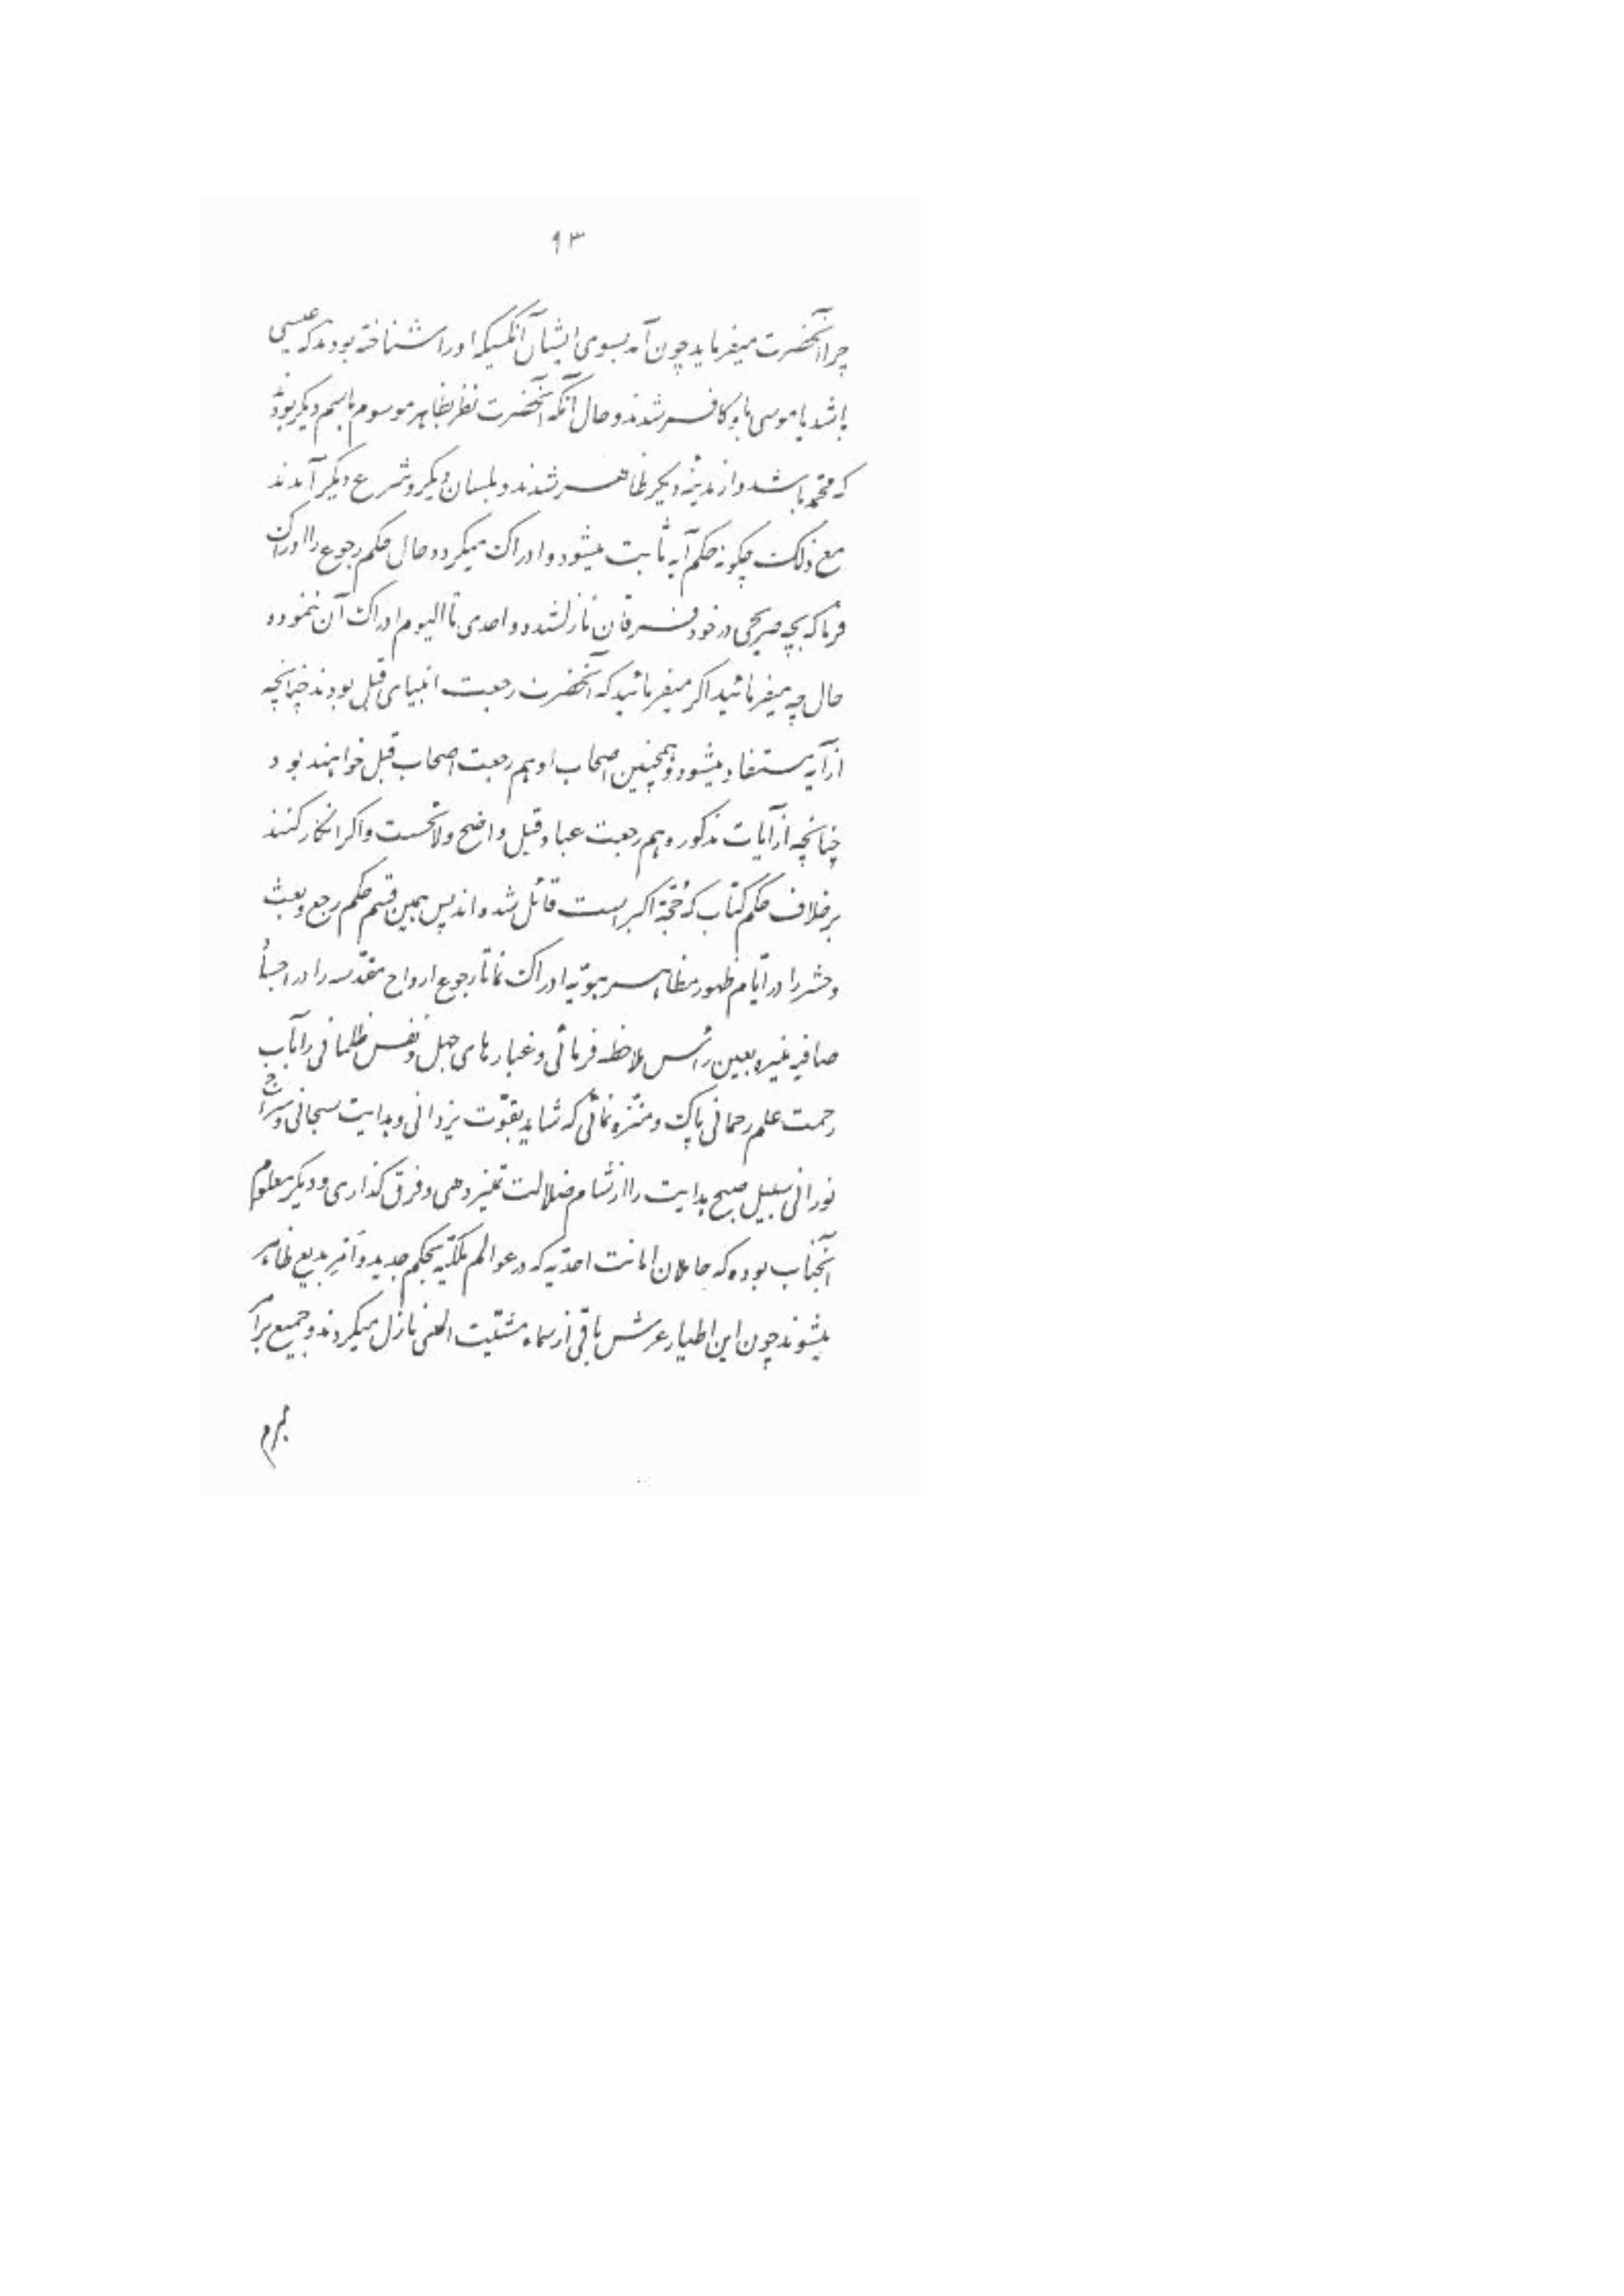 ۹۳
چرا آنحضرت میفرماید چون آمد بسوی ایشان آنکسیکه او را شناخته بودند که عیسی
باشد یا موسی باو کافر شدند و حال آنکه آنحضرت نظر بظاهر موسوم باسم دیگر بودند
که محمّد باشد و از مدینهٔ دیگر ظاهر شدند و بلسان دیگر و شرع دیگر آمدند
مع ذلک چگونه حکم آیه ثابت میشود و ادراک میگردد حال حکم رجوع را ادراک
فرما که بچه صریحی در خود فرقان نازلشده و احدی تا الیوم ادراک آن ننموده
حال چه میفرمائید اگر میفرمائید که آنحضرت رجعت انبیای قبل بودند چنانچه
از آیه مستفاد میشود و همچنین اصحاب او هم رجعت اصحاب قبل خواهند بود
چنانچه از آیات مذکوره هم رجعت عباد قبل واضح و لائحست و اگر انکار کنند
بر خلاف حکم کتاب که حُجّة اکبر است قائل شده‌اند پس همین قسم حکم رجع و بعث
و حشر را در ایّام ظهور مظاهر هویّه ادراک نما تا رجوع ارواح مقدّسه را در اجساد
صافیه منیره بعین رأس ملاحظه فرمائی و غبارهای جهل و نفس ظلمانی را بآب
رحمت علم رحمانی پاک و منزّه نمائی که شاید بقوّت یزدانی و هدایت سبحانی و سراج
نورانی سبیل صبح هدایت را از شام ضلالت تمیز دهی و فرق گذاری و دیگر معلوم
آنجناب بوده که حاملان امانت احدیّه که در عوالم ملکیّه بحکم جدید و اَمرِ بدیع ظاهر
میشوند چون این اطیار عرش باقی از سماء مشیّت الهی نازل میگردند و جمیع بر امر